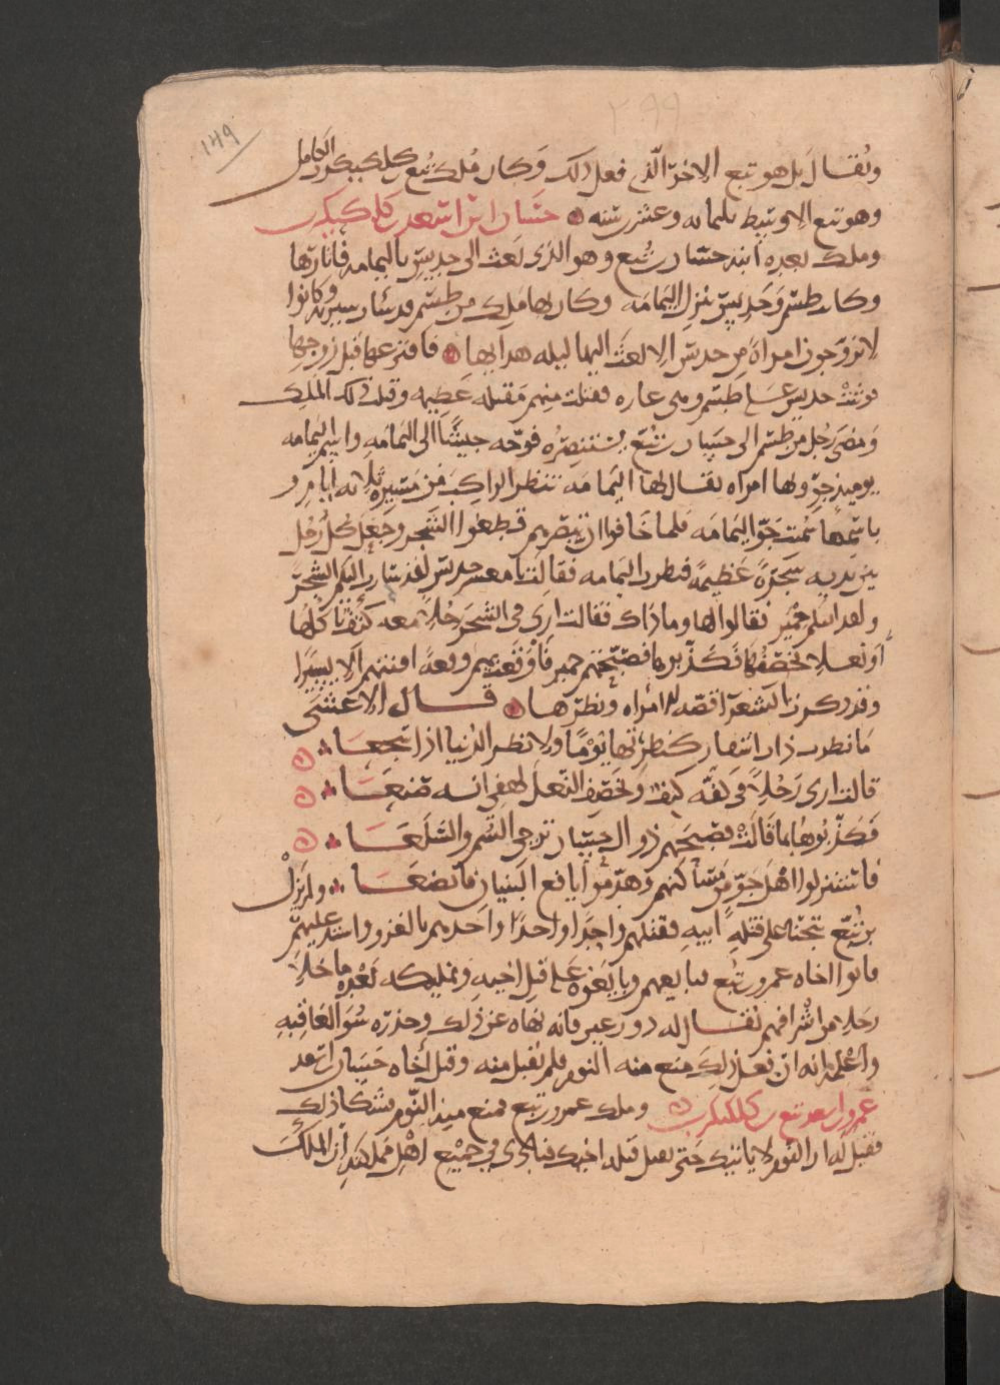 ١٤٩
ويقال بل هو تبع الاخر الذي فعل ذلك وكان ملك تبع كلكيكرب الكامل
وهو تبع الاوسط ثلثمائه وعشرين سنه حسان ابن اسعد كلكيكرب
وملك بعده ابنه حسان تبع وهو الذي بعث الى جديس باليمامه فابارها
وكان طسم وجديس نزل اليمامه وكان لها ملك من طسم قد سار سيره وكانوا
لا يزوجون امراة من جديس الا بعث اليها ليله هدايها فافترعها قبل زوجها
فوثبت جديس على طسم وهي غاره فقتلت منهم مقتله عظيمه وقتلت ذلك الملك
ومضى رجل من طسم الى حسان تبع يستنصره فوجه جيشا الى اليمامه واسم اليمامه
يوميذ جو ولها امراه يقال لها اليمامه تنظر الراكب من مسيره ثلاثه ايام و
باسمها سميت جو اليمامه فلما خافوا ان تبصرهم قطعوا الشجر وجعل كل رجل
بين يديه شجرة عظيمة فنظرت اليمامه فقالت يا معشر جديس لقد سار اليكم الشجر
ولقد اتتكم حمير فقالوا لها وما ذاك فقالت ارى في الشجر رجلا معه كتف ياكلها
او نعلا يخصفها فكذبوها فصبحتهم حمير فاوقعت بهم وقعه افنتهم الا يسيرا
وقد ذكرت الشعرا قصه المراه ونظرها قال الاعشى
ما نظرت ذات اشفار كنظرتها يوما ولا نظر الذيبا اذا سجعا
قالت ارى رجلا في كفه كتف او يخصف النعل لهفي ايه صنعا
فكذبوها بما قالت فصبحهم ذو ال حسان تزجي السمر والسلعا
فاستنزلوا اهل جو من مساكنهم وهدموا يافع البنيان فاتضعا ولم يزل
بن تبع على قتله ابيه فقتلهم واحدا واحدا واخذهم بالغزو واشتد عليهم
فاتوا اخاه عمرو تبع فبايعهم وبايعوه على قتل اخيه وتمليكه بعده ما خلا
رجلا من اشرافهم يقال له ذو رعين فانه نهاه عن ذلك وحذره سو العاقبه
واعلمه انه ان فعل ذلك منع منه النوم فلم يقبل منه وقتل اخاه حسان اسعد
عمرو اسعد تبع كلكيكرب وملك عمرو تبع فمنع منه النوم فشكا ذلك
فقيل له ان النوم لا ياتيك حتى تقتل قتله اخيك فنادى في جميع اهل مملكته ان الملك